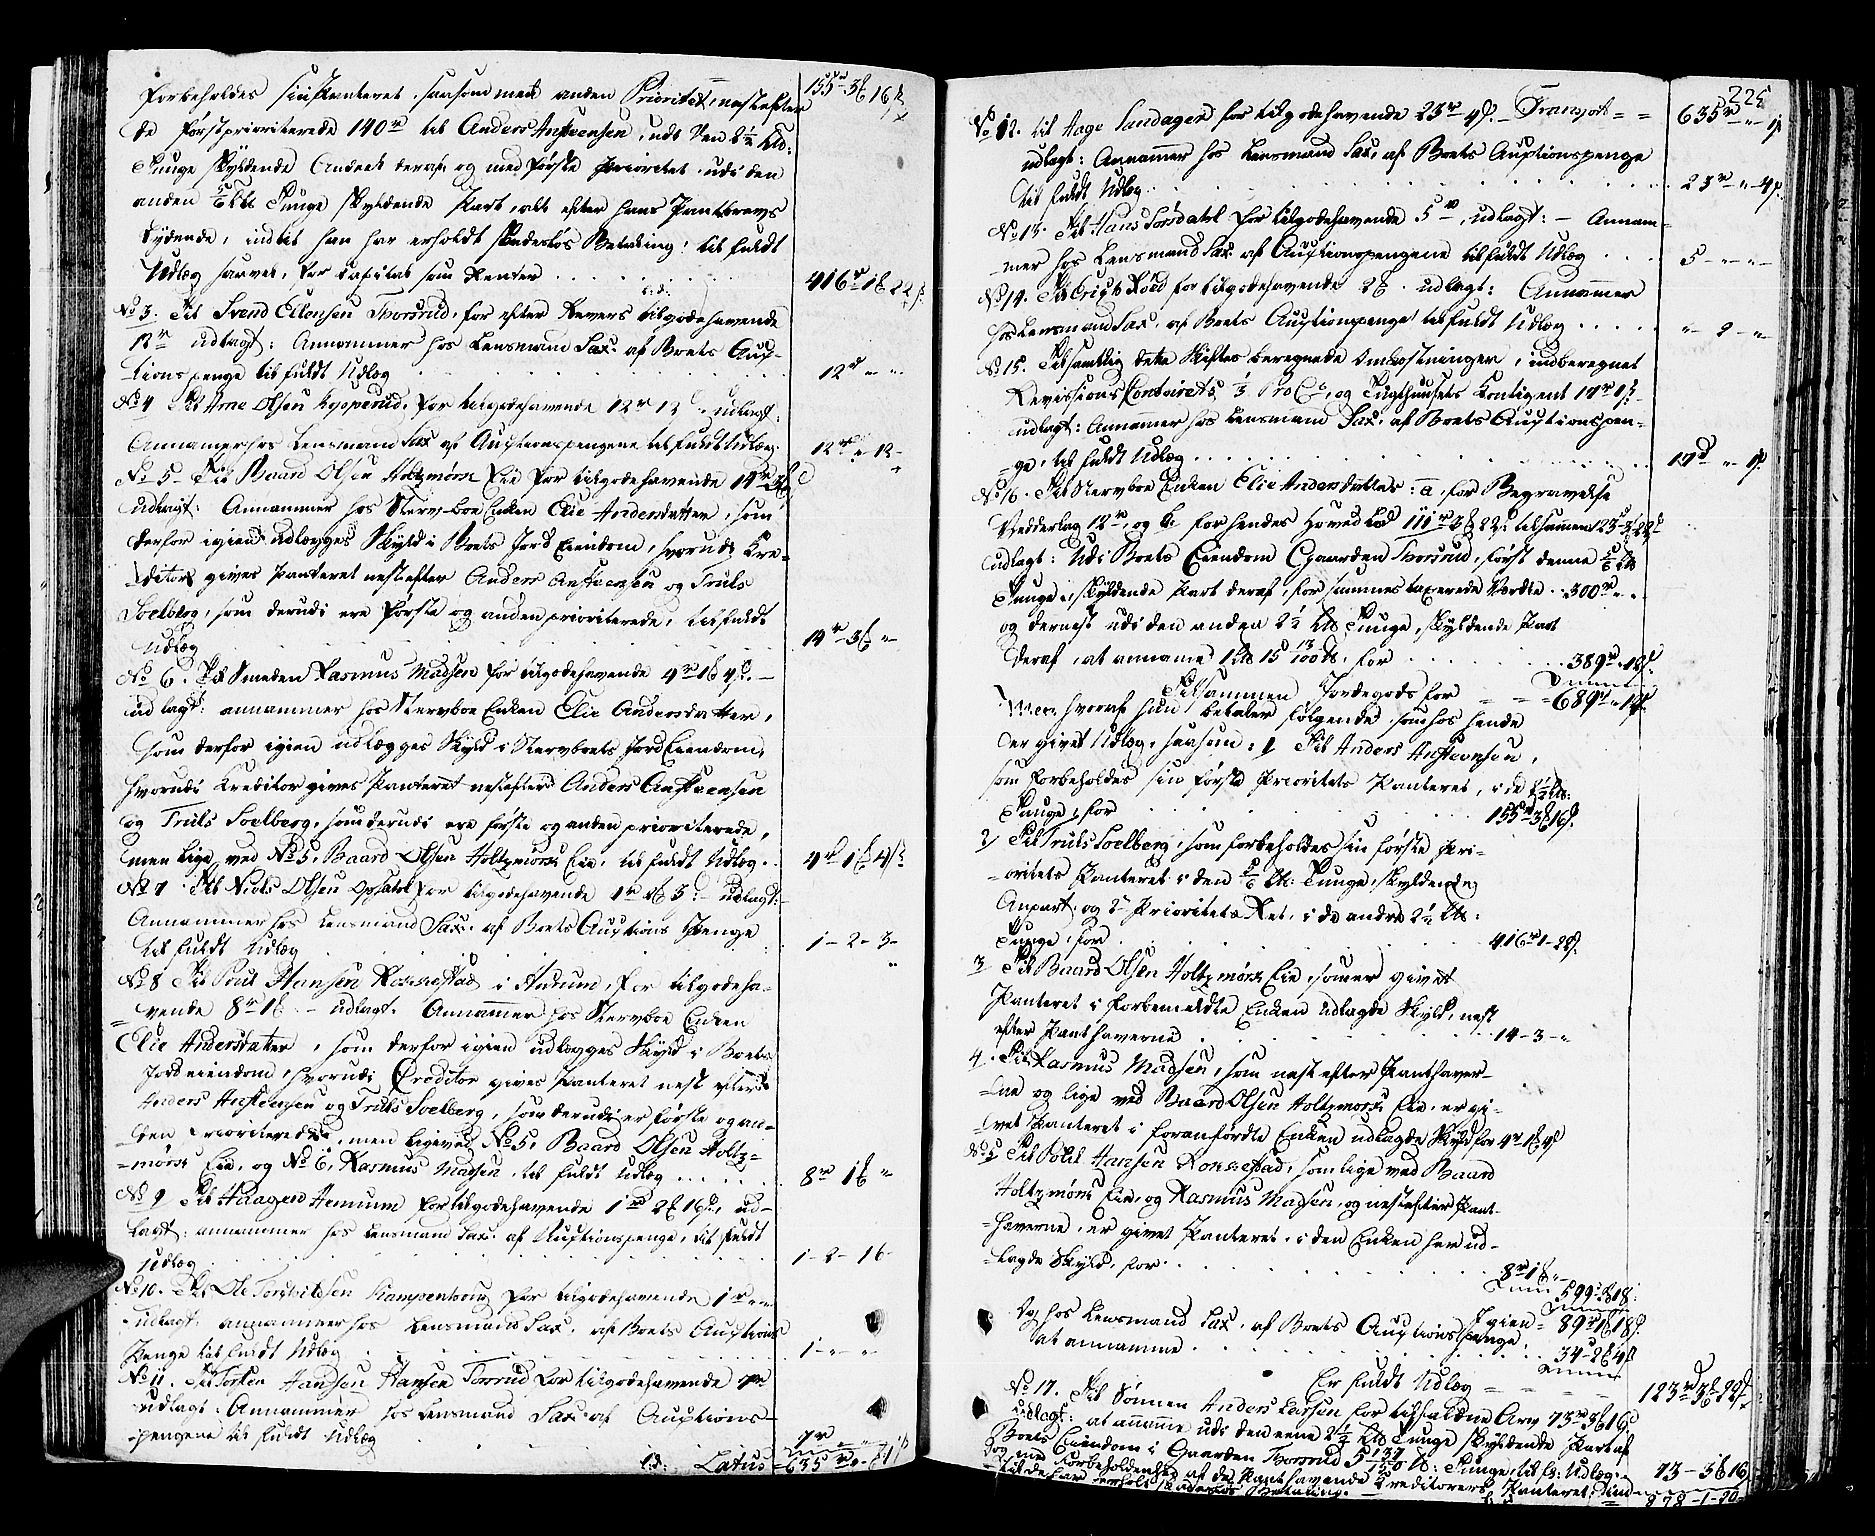 155 - 3 16
forbeholdes sin Panteret saasom med anden Prioritet, næst efter
de først prioriterede 140 rd til Anders Anstensen, udi den 2½ Lb:
Tunge skyldende Andeel deraf og med første Prioritet udi den
anden 5/6 Lb Tunge skyldende Part, alt efter hans Pantbrevs
Lydende, indtil han har erholdt skadesløs Betaling: til fuldt
Udlæg saavel for Capital som Renter . . . 416 - 1 - 22
No 3. Til Svend Ellensen Thorsrud, for efter Revers tilgodehavende
12 rd udlagt: Annammer hos Lensmand Sax. af Boets Auc-
tionspenge til fuldt Udlæg . . . 12 - -
No 4 Til Arne Olsen Kopperud, for tilgodehavende 12 rd 12 udlagt:
Annammer hos Lensmand Sax af Auctionspengene til fuldt Udlæg 12 - 12 -
No 5 - Til Baard Olsen Holtzmørs Eie for tilgodehavende 14 rd 3
udlagt: Annammer hos Stervboe Enken Elie Andersdatter, som
derfor igien udlægges Skyld i Boets Jord Eiendom, hvorudi Kre-
ditor gives Panteret næst efter Anders Anstensen og Truls
Soelberg, som derudi ere første og anden prioriterede, til fuldt
Udlæg . . . 14 - 3 -
No 6. Til Smeden Rasmus Madsen for tilgodehavende 4 rd 1 4 -
udlagt: annammer hos Stervboe Enken Elie Andersdatter,
som derfor igien udlægges Skyld i Stervboets Jord Eiendom,
hvorudi Kreditor gives Panteret næst efter Anders Anstensen
og Truls Soelberg, som derudi ere første og anden prioriterede,
men lige ved No 5, Baard Olsen Holtzmørs Eie, til fuldt Udlæg . . 4 1 4
No 7 Til Niels Olsen Opsahl for tilgodehavende 1 rd 2 3: - udlagt:
Annammer hos Lensmand Sax. af Boets Auctions Penge
til fuldt Udlæg . . . 1 - 2 - 3 -
No 8 Til Poul Hansen Ronnestad i Aurum, for tilgodeha-
vende 8 rd 1 - udlagt. Annammer hos Stervboe Enken
Elie Andersdatter, som derfor igien udlægges Skyld i Boets
Jordeiendom, hvorudi Creditor gives Panteret næst efter
Anders Anstensen og Truls Soelberg, som derudi er første og an-
den Prioriterede, men lige ved No 5, Baard Olsen Holtz-
mørs Eie, og No 6, Rasmus Madsen, til fuldt Udlæg . . . 8 rd 1 "
No 9 Til Haagen Hemnum for tilgodehavende 1 rd 2 16, ud-
lagt: annammer hos Lensmand Sax. af Auctionspenge, til fuldt
Udlæg . . . 1 - 2 - 16 -
No 10. Til Ole Kampenhoug for tilgodehavende 1 rd
udlagt: annammer hos Lensmand Sax. af Boets Auctions
Penge til fuldt Udlæg . . . 1 - " - "
No 11. Til Torsten Hansen Torsrud for tilgodehavende
udlagt. Annammer hos Lensmand Sax af Auctions-
pengene til fuldt Udlæg
Latus - 635
225
No 12. til Aage Sandager for tilgodehavende 23 rd 4. - Transport = = 635
udlagt: Annammer hos Lensmand Sax, af Boets Auctionspenge
til fuldt Udlæg . . . 23 - " - 4
No 13. Til Hans Torsdahl for tilgodehavende 5 rd, udlagt: - Annam-
mer hos Lensmand Sax af Auctionspengene til fuldt Udlæg . . 5 - " - "
No 14. Til for tilgodehavende 2. udlagt: Annammer
hos Lensmand Sax. af Boets Auctionspenge til fuldt Udlæg . . . " - 2 - "
No 15. Til samtlig dette Skiftes beregnede Omkostninger, indberegnet
Revissions Contoirets ⅓ Pro Ct, og Tugthuusets Contigent 17 rd 1
udlagt: Annammer hos Lensmand Sax. af Boets Auctionspen-
ge, til fuldt Udlæg . . . 17 - " - 1
No 16. Til Stervboe Enken Elie Anders datter: a, for Begravelse
Vedderlag 12 rd, og b. for hendes Hoved Lod 111 rd 3 22 tilsammen 123 - 3 - 22
udlagt: Udi Boets Eiendom Gaarden Thorsrud, først denne 5/6 Lb
Tunge, skyldende Part deraf, for sammes taxerede Værdie . . 300 rd " "
og dernæst udi den anden 2½ Lb Tunge, skyldende Part
deraf, at annamme 1 Lb 15 13/100, for . . . 389 - " 18
Tilsammen Jordegods for = = 689 rd " 18
Men hvoraf hun betaler følgende som hos hende
er givet Udlæg, saasom: 1 Til Anders Anstensen,
som forbeholdes sin første Prioritets Panteret, i de 2½ Lb:
Tunge, for . . . 155 rd 3 16
2) Til Truls Soelberg, som forbeholdes sin første Pri-
oritets Panteret i den 5/6 Lb: Tunge, skyldende
Anpart, og 2de Prioritets Ret, i de andre 2½ Lb:
Tunge, for . . . 416 rd 1 - 22
3 Til Baard Olsen Holtzmørs Eie, som er givet
Panteret i forbemeldte Enken udlagde Skyld, næst
efter Panthaverne . . . 14 - 3 - "
4. Til Rasmus Madsen, som næst efter Panthaver-
ne og lige ved Baard Olsen Holtzmørs Eie, er gi-
vet Panteret i foranførdte Enken udlagde Skyld for 4 rd 1 4
No 5 Til Poul Hansen Ronnestad, som lige ved Baard
Holtzmørs Eie, og Rasmus Madsen, og næst efter Pant-
haverne, er givet Panteret i den Enken her ud-
lagde Skyld, for . . . 8 rd 1 -
599 - 2 18
Igien = 89 rd 1 18
Og hos Lensmand Sax. af Boets Auctionspenge
at annamme . . . 34 - 2 4
Er fuldt Udlæg = = = 123 3 22
No 17. Til Sønnen Anders Larsen for tilfaldne Arv 73 rd 3 16
udlagt: at annamme udi den eene 2½ Lb Tunge skyldende Part af
Boets Eiendom i Gaarden Thorsrud Tunge, til fuldt Udlæg . 73 - 3 16
dog med Forbeholdenhed af de Panthavende Kreditorers Panteret, ind-
til de har erholdt skadesløs Betaling. 878 - 1 - 20